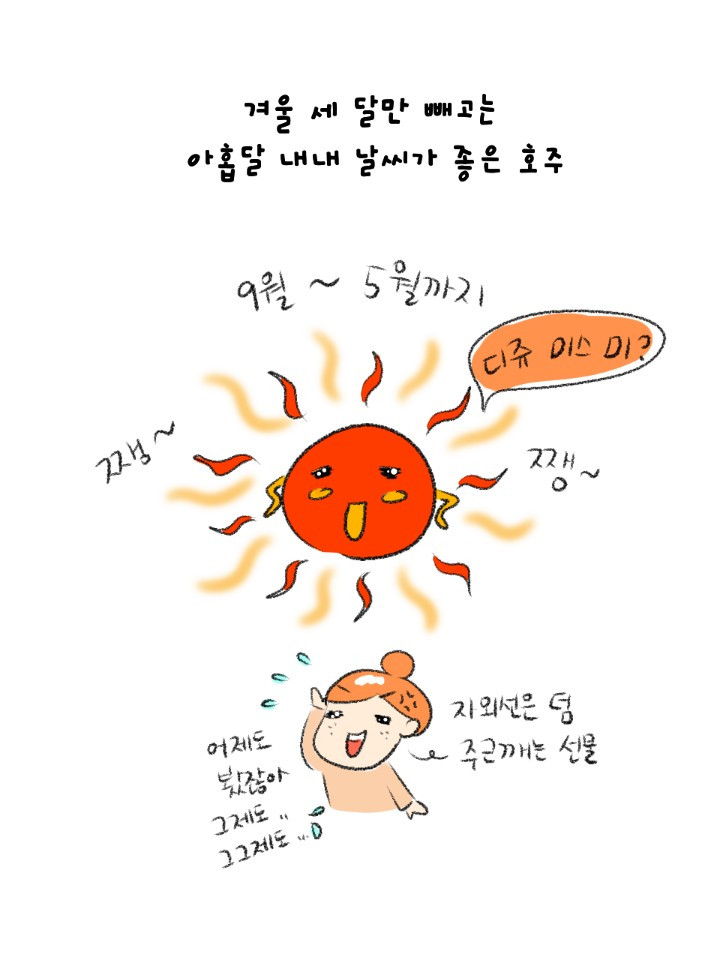 겨울 세 달만 빼고는
아홉달 내내 날씨가 좋은 호주
9월 ~ 5월까지
디쥬 미스 미?
쨍~
쨍~
지외선은 덤
주근깨는 선물
어제도
봤잖아
그제도..
그그제도...